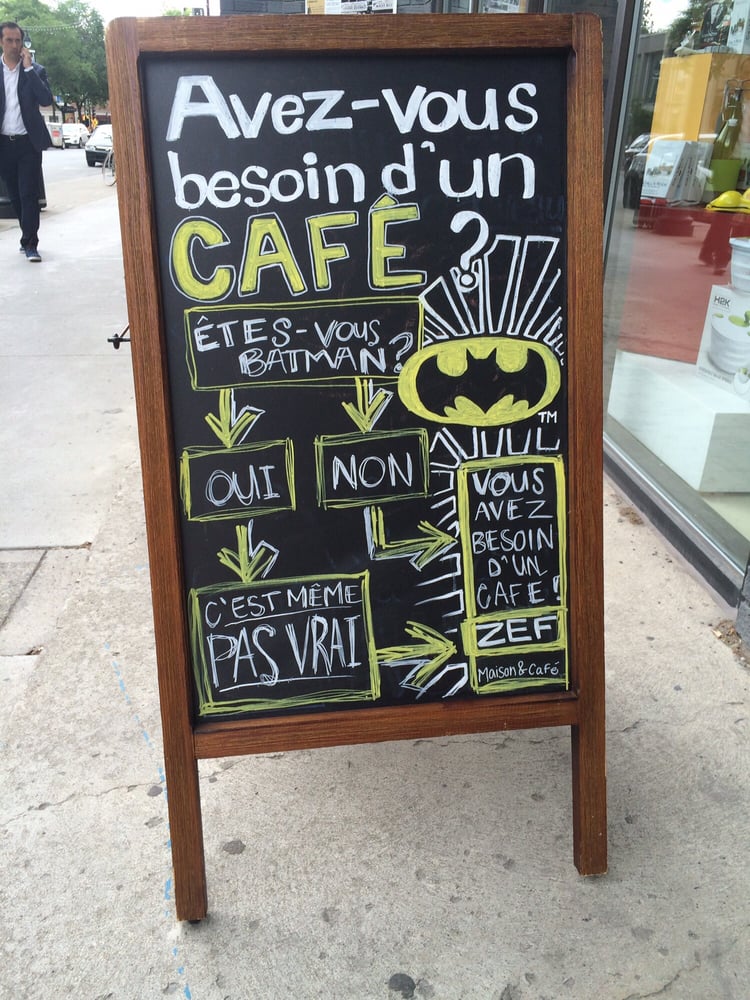 Avez-vous
besoin d'un
CAFÊ ?
ÊTES-VOUS
BATMAN?
OUI
NON
C'EST MÊME
PAS VRAI
TM
VOUS
AVEZ
BESOIN
D'UN
CAFE!
ZEF
Maison & Café
H2K